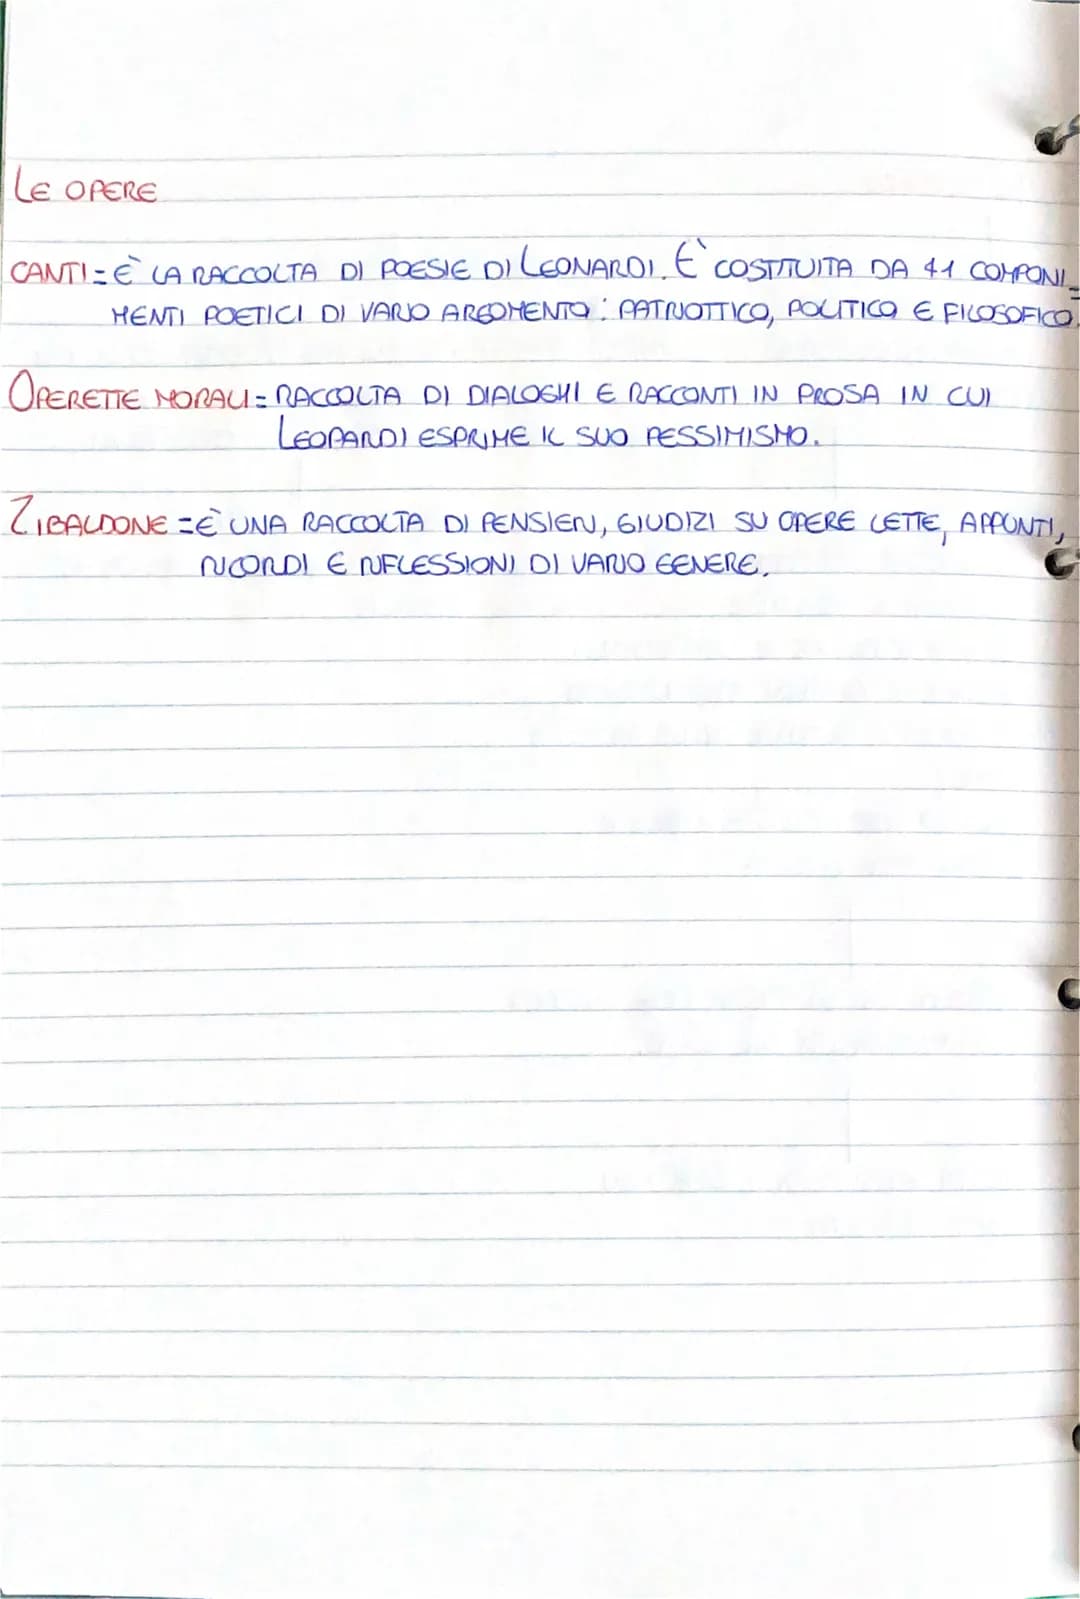 LE OPERE
CANTI = È LA RACCOLTA DI POESIE DI LEONARDI. È COSTITUITA DA 41 COMPONI_
MENTI POETICI DI VARIO ARGOMENTO: PATRIOTTICO, POLITICO E FILOSOFICO.
OPERETTE MORALI = RACCOLTA DI DIALOGHI E RACCONTI IN PROSA IN CUI
LEOPARDI ESPRIME IL SUO PESSIMISMO.
ZIBALDONE = È UNA RACCOLTA DI PENSIERI, GIUDIZI SU OPERE LETTE, APPUNTI,
RICORDI E RIFLESSIONI DI VARIO GENERE.